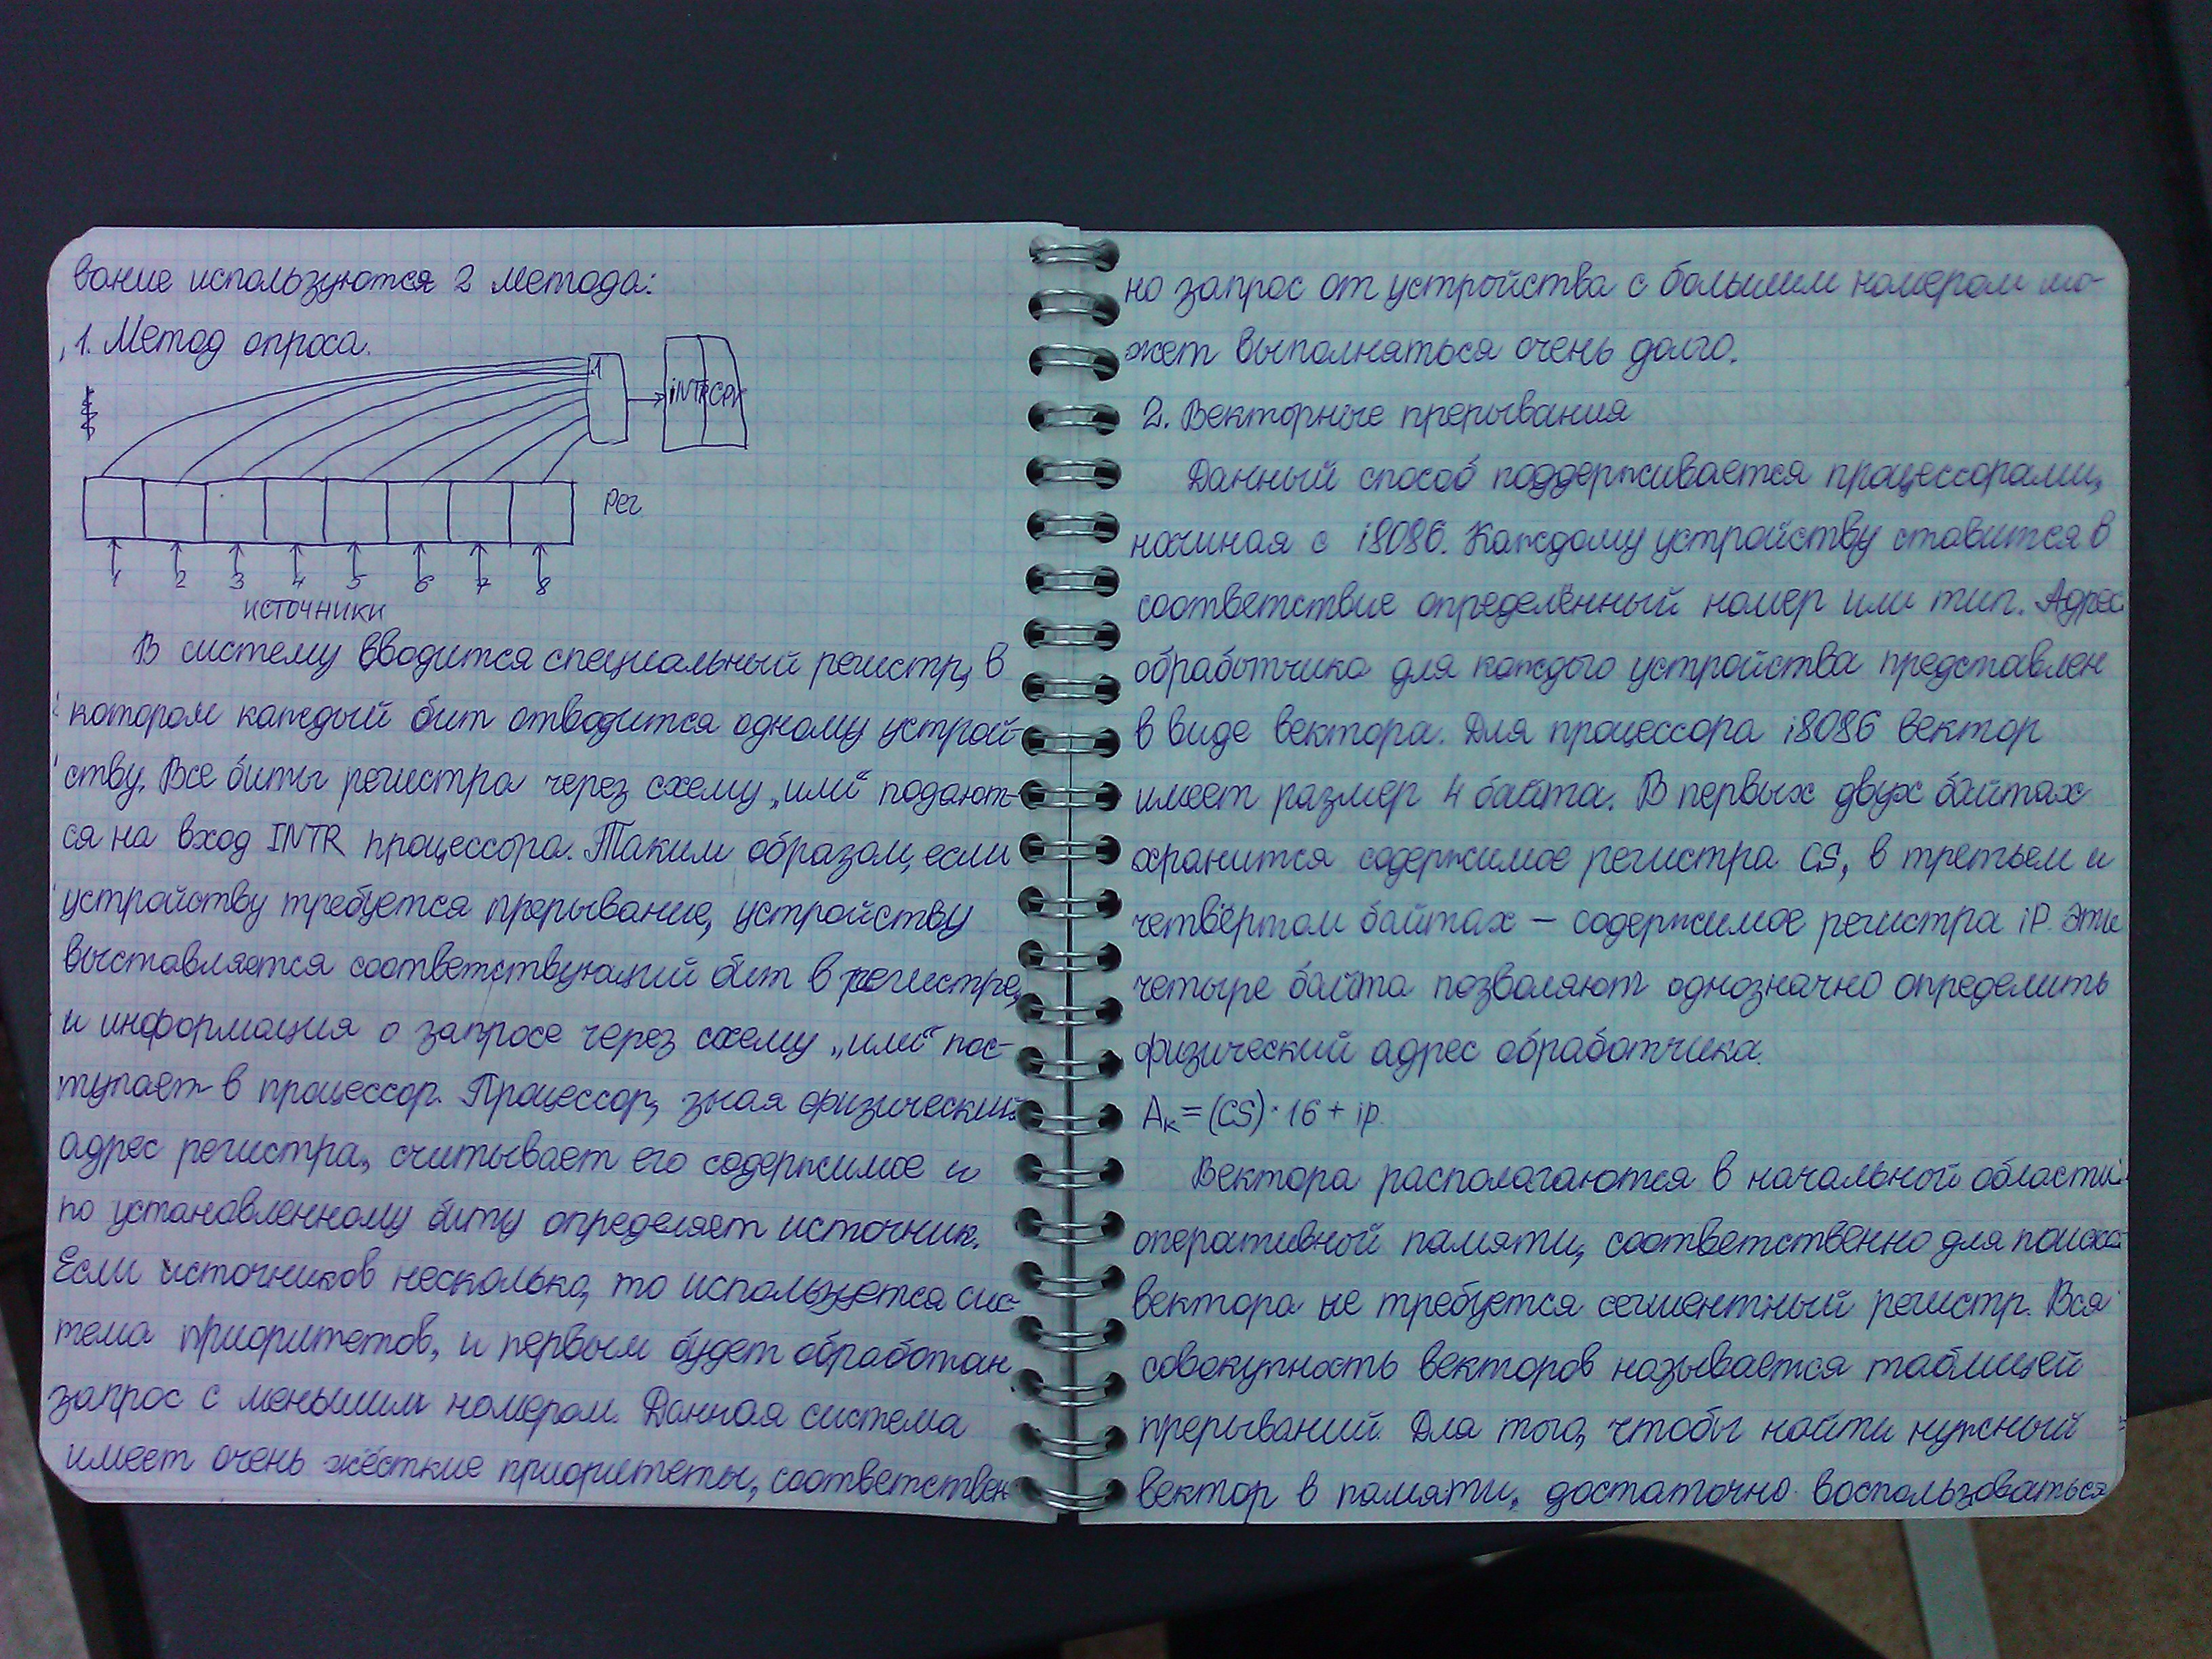 вание используются 2 метода:
1. Метод опроса.
1
INTR CPU
Рег
1 2 3 4 5 6 7 8
источники
В систему вводится специальный регистр, в
котором каждый бит отводится одному устрой-
ству. Все биты регистра через схему „или“ подают-
ся на вход INTR процессора. Таким образом, если
устройству требуется прерывание, устройству
выставляется соответствующий бит в регистре,
и информация о запросе через схему „или“ пос-
тупает в процессор. Процессор, зная физический
адрес регистра, считывает его содержимое и
по установленному биту определяет источник.
Если источников несколько, то используется сис-
тема приоритетов, и первым будет обработан
запрос с меньшим номером. Данная система
имеет очень жёсткие приоритеты, соответствен
но запрос от устройства с большим номером мо-
жет выполняться очень долго.
2. Векторные прерывания
Данный способ поддерживается процессорами,
начиная с i8086. Каждому устройству ставится в
соответствие определённый номер или тип. Адрес
обработчика для каждого устройства представлен
в виде вектора. Для процессора i8086 вектор
имеет размер 4 байта. В первых двух байтах
хранится содержимое регистра CS, в третьем и
четвёртом байтах – содержимое регистра iP. Эти
четыре байта позволяют однозначно определить
физический адрес обработчика.
Aк = (CS) · 16 + ip.
Вектора располагаются в начальной области
оперативной памяти, соответственно для поиска
вектора не требуется сегментный регистр. Вся
совокупность векторов называется таблицей
прерываний. Для того, чтобы найти нужный
вектор в памяти, достаточно воспользоваться